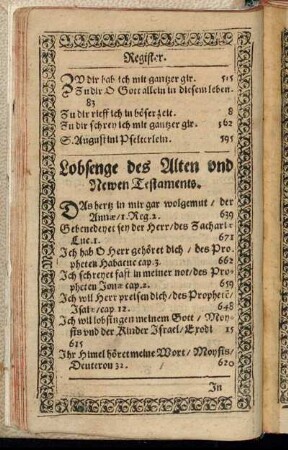 Register.
ZV dir hab ich mit gantzer gir. 515
Zu dir O Gott allein in diesem leben.
83
Zu dir rieff ich in böser zeit. 8
Zu dir schrey ich mit gantzer gir. 562
S. Augustini Pselterlein. 595
Lobsenge des Alten vnd
Newen Testaments.
DAs hertz in mir gar wolgemut / der
Annæ / 1. Reg. 2. 639
Gebenedeyet sey der Herr / des Zachariæ
Luc. 1. 671
Ich hab O Herr gehöret dich / des Pro-
pheten Habacuc cap 3. 662
Ich schreyet fast in meiner not / des Pro-
pheten Jonæ cap. 2. 659
Ich will Herr preisen dich / des Prophetē
Isaiæ / cap 12. 648
Ich will lobsingen meinem Gott / Moy-
sis vnd der Kinder Israel / Exodi 15
615
Ihr Himel höret meine Wort / Moysis /
Deuteron 32. / 620
In